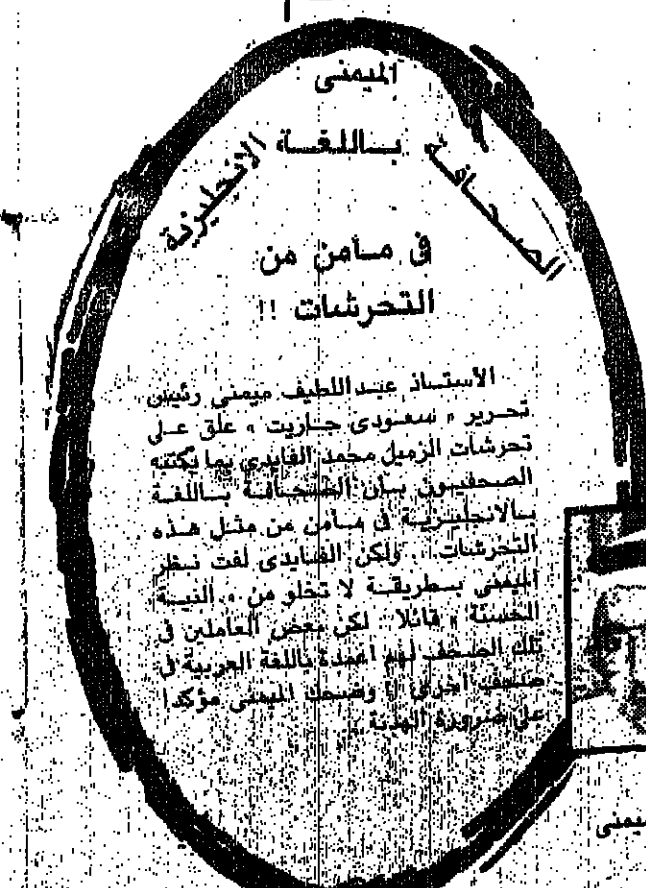 الميمنى
الصحافة باللغة الانجليزية
فى مأمن من
التحرشات !!
الأستاذ عبد اللطيف ميمنى رئيس
تحرير « سعودى جازيت » علق على
تحرشات الزميل محمد الفايدي بما يكتبه
الصحفيون بأن الصحافة باللغة
بالانجليزية فى مأمن من مثل هذه
التحرشات .. ولكن الفايدى لفت نظر
الميمنى بطريقة لا تخلو من « النية
الحسنة » قائلا : لكن بعض العاملين فى
تلك الصحف لهم اعمدة باللغة العربية فى
صحف اخرى !! وضحك الميمنى مؤكدا
على ضرورة الهدنة ..
ميمنى